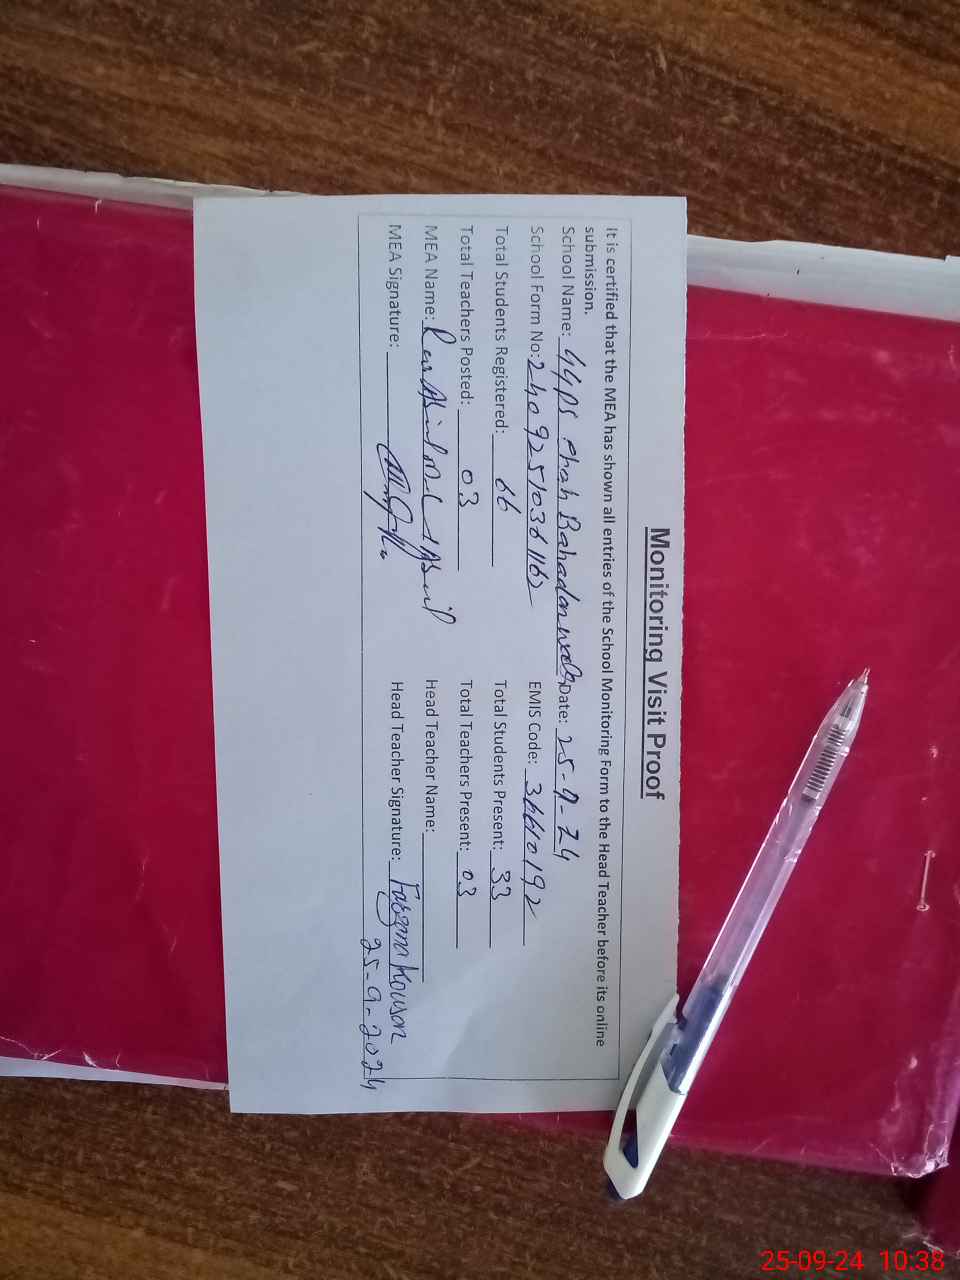 Monitoring Visit Proof
It is certified that the MEA has shown all entries of the School Monitoring Form to the Head Teacher before its online
submission.
School Name: GGPS Chah Bahadar wala Date: 25-9-24
School Form No: EMIS Code: 36610192
Total Students Registered: 66 Total Students Present: 33
Total Teachers Posted: 03 Total Teachers Present: 03
MEA Name: Head Teacher Name:
MEA Signature: Head Teacher Signature: Kousar
25-9-2024
25-09-24 10:38